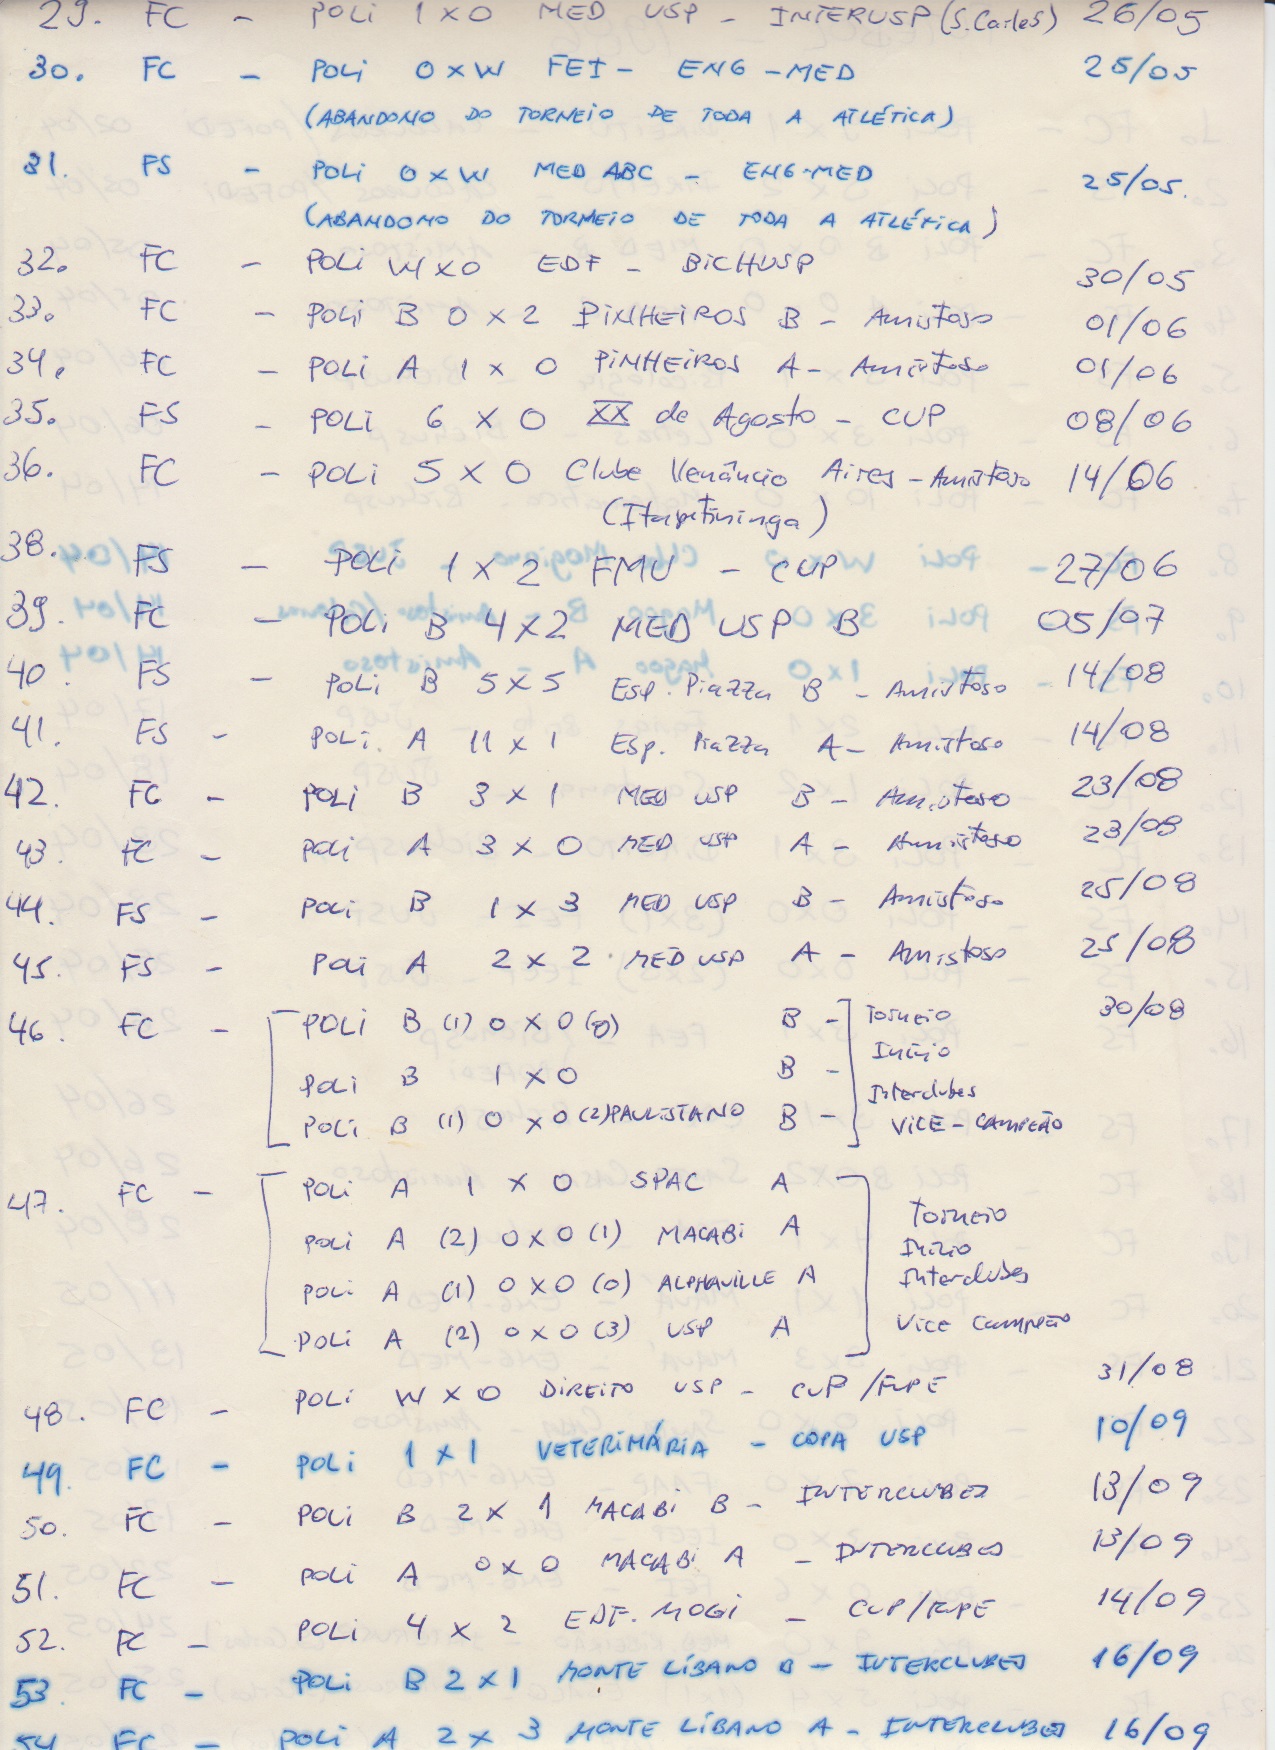 29. FC - POLI 1 X 0 MED USP - INTERUSP (S. Carlos) 26/05
30. FC - POLI 0 X W FEI - ENG - MED 25/05
(ABANDONO DO TORNEIO DE TODA A ATLÉTICA)
31. FS - POLI 0 X W MED ABC - ENG-MED 25/05.
(ABANDONO DO TORNEIO DE TODA A ATLÉTICA)
32. FC - POLI W X 0 EDF - BICHUSP 30/05
33. FC - POLI B 0 X 2 PINHEIROS B - Amistoso 01/06
34. FC - POLI A 1 X 0 PINHEIROS A - Amistoso 01/06
35. FS - POLI 6 X 0 XX de Agosto - CUP 08/06
36. FC - POLI 5 X 0 Clube Venâncio Aires - Amistoso 14/06
(Itapetininga)
38. FS - POLI 1 X 2 FMU - CUP 27/06
39. FC - POLI B 4 X 2 MED USP B 05/07
40. FS - POLI B 5 X 5 Esp. Piazza B - Amistoso 14/08
41. FS - POLI. A 11 X 1 Esp. Piazza A - Amistoso 14/08
42. FC - POLI B 3 X 1 MED USP B - Amistoso 23/08
43. FC - POLI A 3 X 0 MED USP A - Amistoso 23/08
44. FS - POLI B 1 X 3 MED USP B - Amistoso 25/08
45. FS - POLI A 2 X 2 MED USP A - Amistoso 25/08
46. FC - POLI B (1) 0 X 0 (0) B - Torneio 30/08
Início
POLI B 1 X 0 B -
Interclubes
POLI B (1) 0 X 0 (2) PAULISTANO B - VICE-CAMPEÃO
47. FC - POLI A 1 X 0 SPAC A
Torneio
POLI A (2) 0 X 0 (1) MACABI A
Início
POLI A (1) 0 X 0 (0) ALPHAVILLE A Interclubes
POLI A (2) 0 X 0 (3) USP A Vice Campeão
48. FC - POLI W X 0 DIREITO USP - CUP/FUPE 31/08
49. FC - POLI 1 X 1 VETERIMÁRIA - COPA USP 10/09
50. FC - POLI B 2 X 1 MACABI B - INTERCLUBES 13/09
51. FC - POLI A 0 X 0 MACABI A - INTERCLUBES 13/09
52. FC - POLI 4 X 2 EDF. MOGI - CUP/FUPE 14/09
53. FC - POLI B 2 X 1 MONTE LÍBANO B - INTERCLUBES 16/09
54 FC - POLI A 2 X 3 MONTE LÍBANO A - INTERCLUBES 16/09